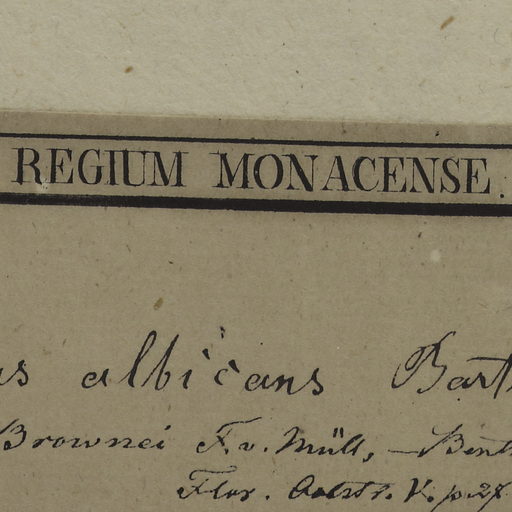 REGIUM MONACENSE.
us albicans Bart
Brownei F. v. Müll, — Benth
Flor. Austr. V. p. 27